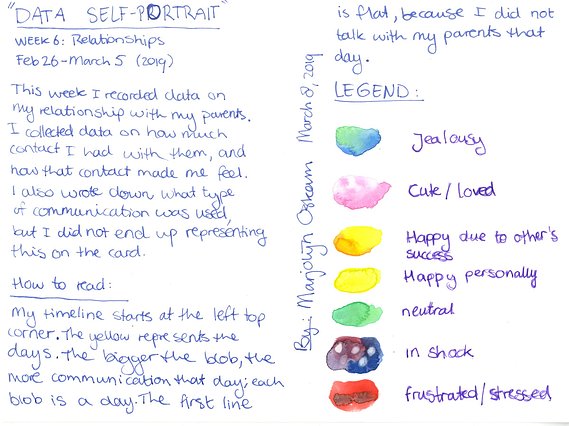 "DATA SELF-PORTRAIT"
WEEK 6: Relationships
Feb 26 - March 5 (2019)
This week I recorded data on
my relationship with my parents.
I collected data on how much
contact I had with them, and
how that contact made me feel.
I also wrote down what type
of communication was used,
but I did not end up representing
this on the card.
How to read:
My timeline starts at the left top
corner. The yellow represents the
days. The bigger the blob, the
more communication that day; each
blob is a day. The first line
is flat, because I did not
talk with my parents that
day.
By: Marjolijn Oskam March 8, 2019
LEGEND:
Jealousy
Cute / loved
Happy due to other's
success
Happy personally
neutral
in shock
frustrated/stressed